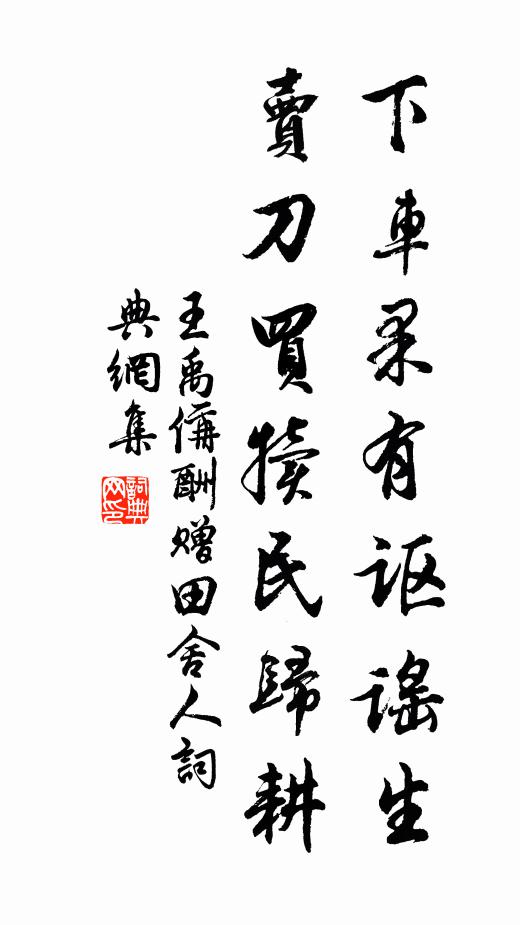 下車果有讴謠生
賣刀買犢民歸耕
王禹偁酬贈田舍人詞
典網集
詞典
网印